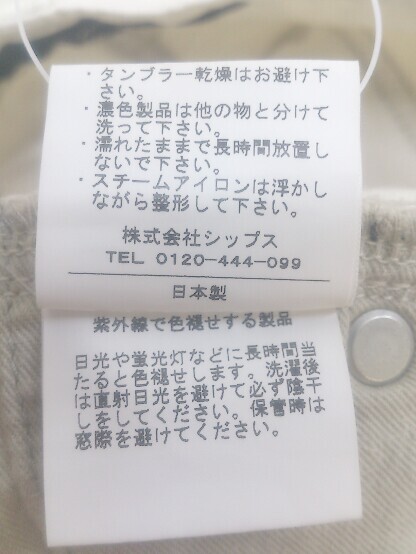 ・タンブラー乾燥はお避け下
さい。
・濃色製品は他の物と分けて
洗って下さい。
・濡れたままで長時間放置し
ないで下さい。
・スチームアイロンは浮かし
ながら整形して下さい。
株式会社シップス
TEL 0120-444-099
日本製
紫外線で色褪せする製品
日光や蛍光灯などに長時間当
たると色褪せします。洗濯後
は直射日光を避けて必ず陰干
しをしてください。保管時は
窓際を避けてください。